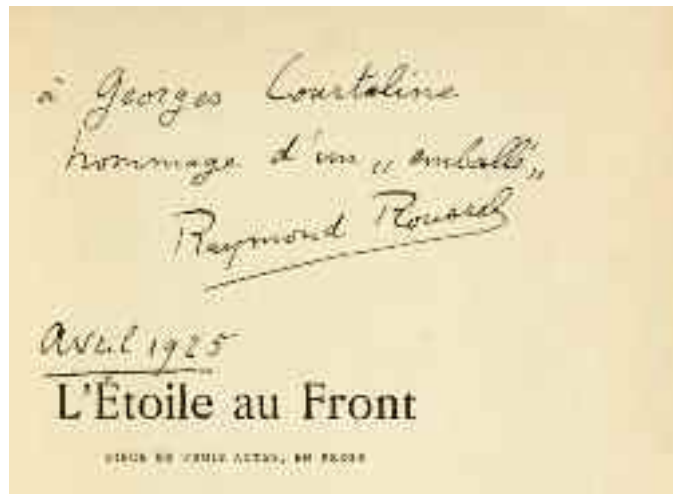 à Georges Courteline
hommage d'un „ emballé „
Raymond Roussel
Avril 1925
L'Étoile au Front
PIÈCE EN TROIS ACTES, EN PROSE